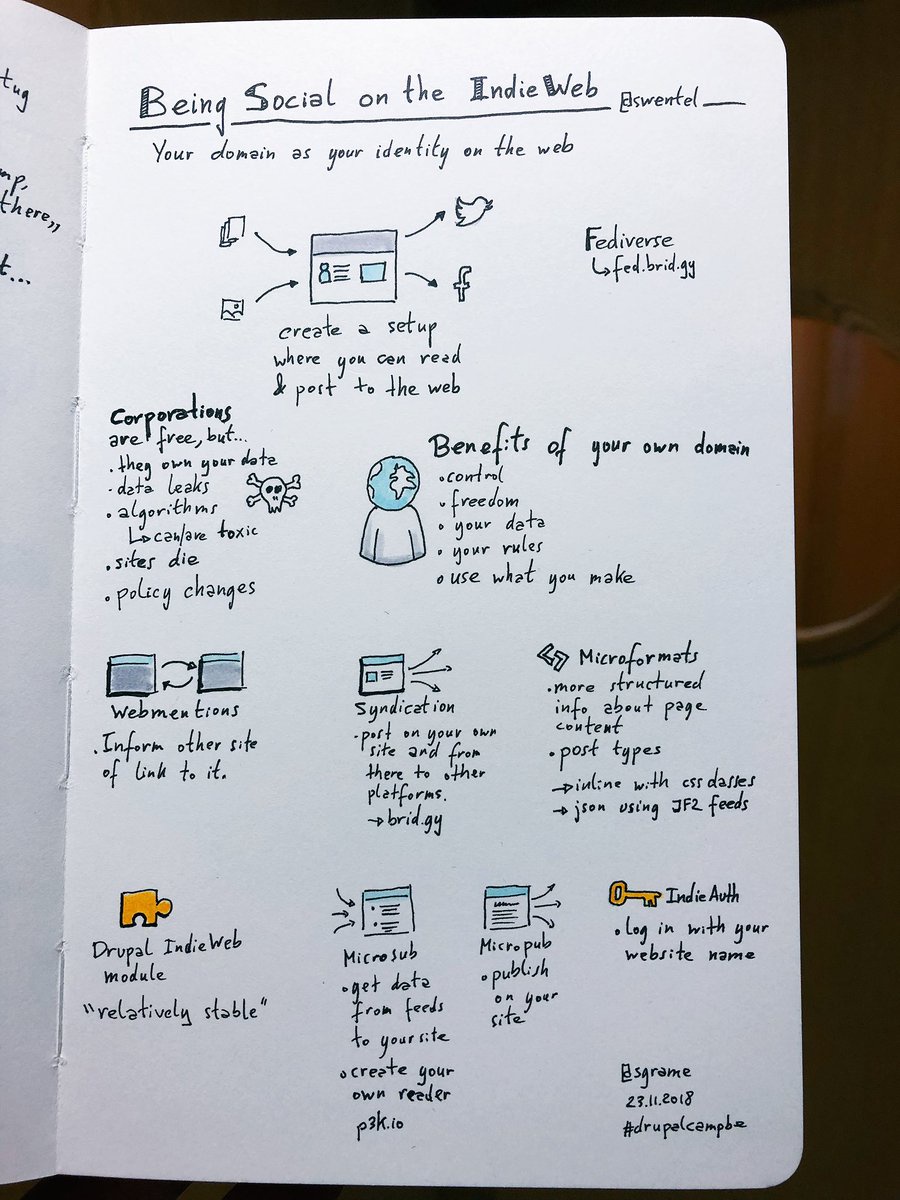 tug
mp,
there,,
t...
Being Social on the IndieWeb @swentel
Your domain as your identity on the web
Fediverse
↳fed.brid.gy
create a setup
where you can read
& post to the web
Corporations
are free, but...
• they own your data
• data leaks
• algorithms
↳can/are toxic
• sites die
• policy changes
Benefits of your own domain
• control
• freedom
• your data
• your rules
• use what you make
Webmentions
• Inform other site
of link to it.
Syndication
• post on your own
site and from
there to other
platforms.
→ brid.gy
Microformats
• more structured
info about page
content
• post types
→ inline with css classes
→ json using JF2 feeds
Drupal IndieWeb
module
"relatively stable"
Microsub
• get data
from feeds
to your site
• create your
own reader
p3k.io
Micropub
• publish
on your
site
IndieAuth
• log in with your
website name
@sgrame
23.11.2018
#drupalcampbe